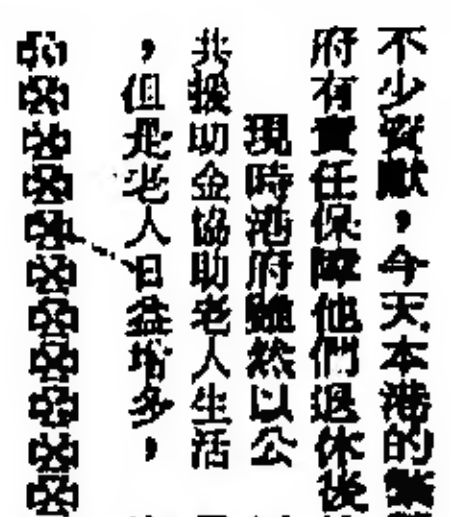 不少貢獻，今天本港的繁
府有責任保障他們退休後
現時港府雖然以公
共援助金協助老人生活
，但是老人日益增多，